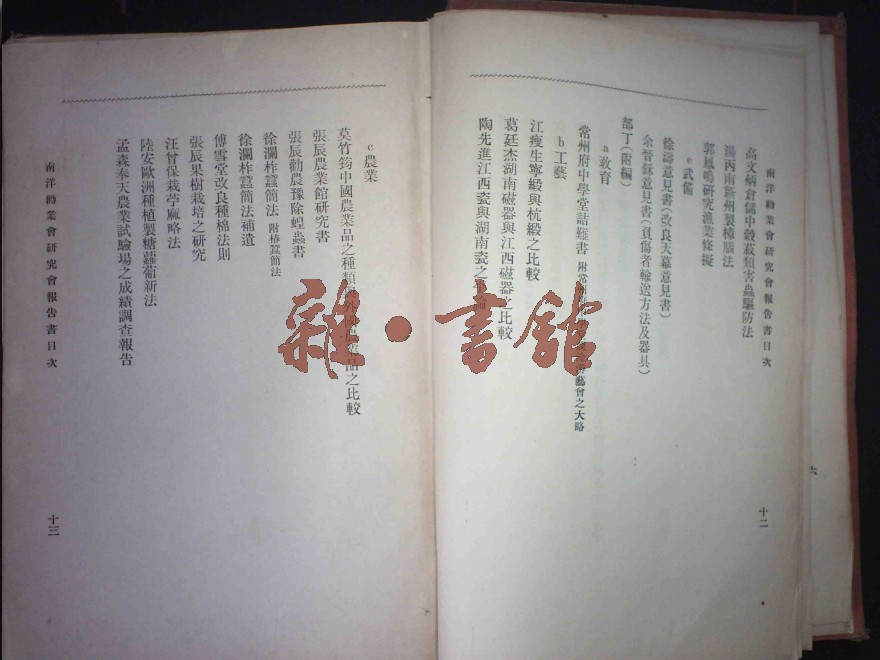 南洋勸業會研究會報告書目次
高文炳倉儲中穀菽類害蟲驅防法
湯丙南新州製樟腦法
郭鳳鳴研究漁業條擬
e武備
徐濤意見書(改良天幕意見書)
余晉龢意見書(負傷者輸送方法及器具)
部丁(附編)
a教育
常州府中學堂詰難書 附常 藝會之大略
b工藝
江瘦生寧緞與杭緞之比較
葛廷杰湖南磁器與江西磁器之比較
陶先進江西瓷與湖南瓷之
十二
六
c農業
莫竹筠中國農業品之種類 農業品之比較
張辰農業館研究書
張辰勸農豫除蝗蟲書
徐瀾柞蠶簡法 附椿蠶簡法
徐瀾柞蠶簡法補遺
傅雪堂改良種棉法則
張辰果樹栽培之研究
汪曾保栽苧麻略法
陸安歐洲種植製糖蘿蔔新法
孟森奉天農業試驗場之成績調查報告
南洋勸業會研究會報告書目次
十三
雜·書館